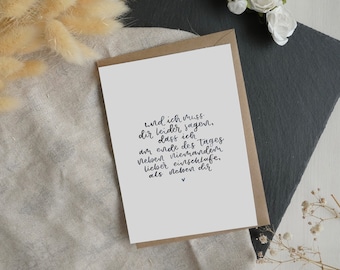 und ich muss
dir leider sagen,
dass ich
am ende des Tages
neben niemandem
lieber einschlafe,
als neben dir